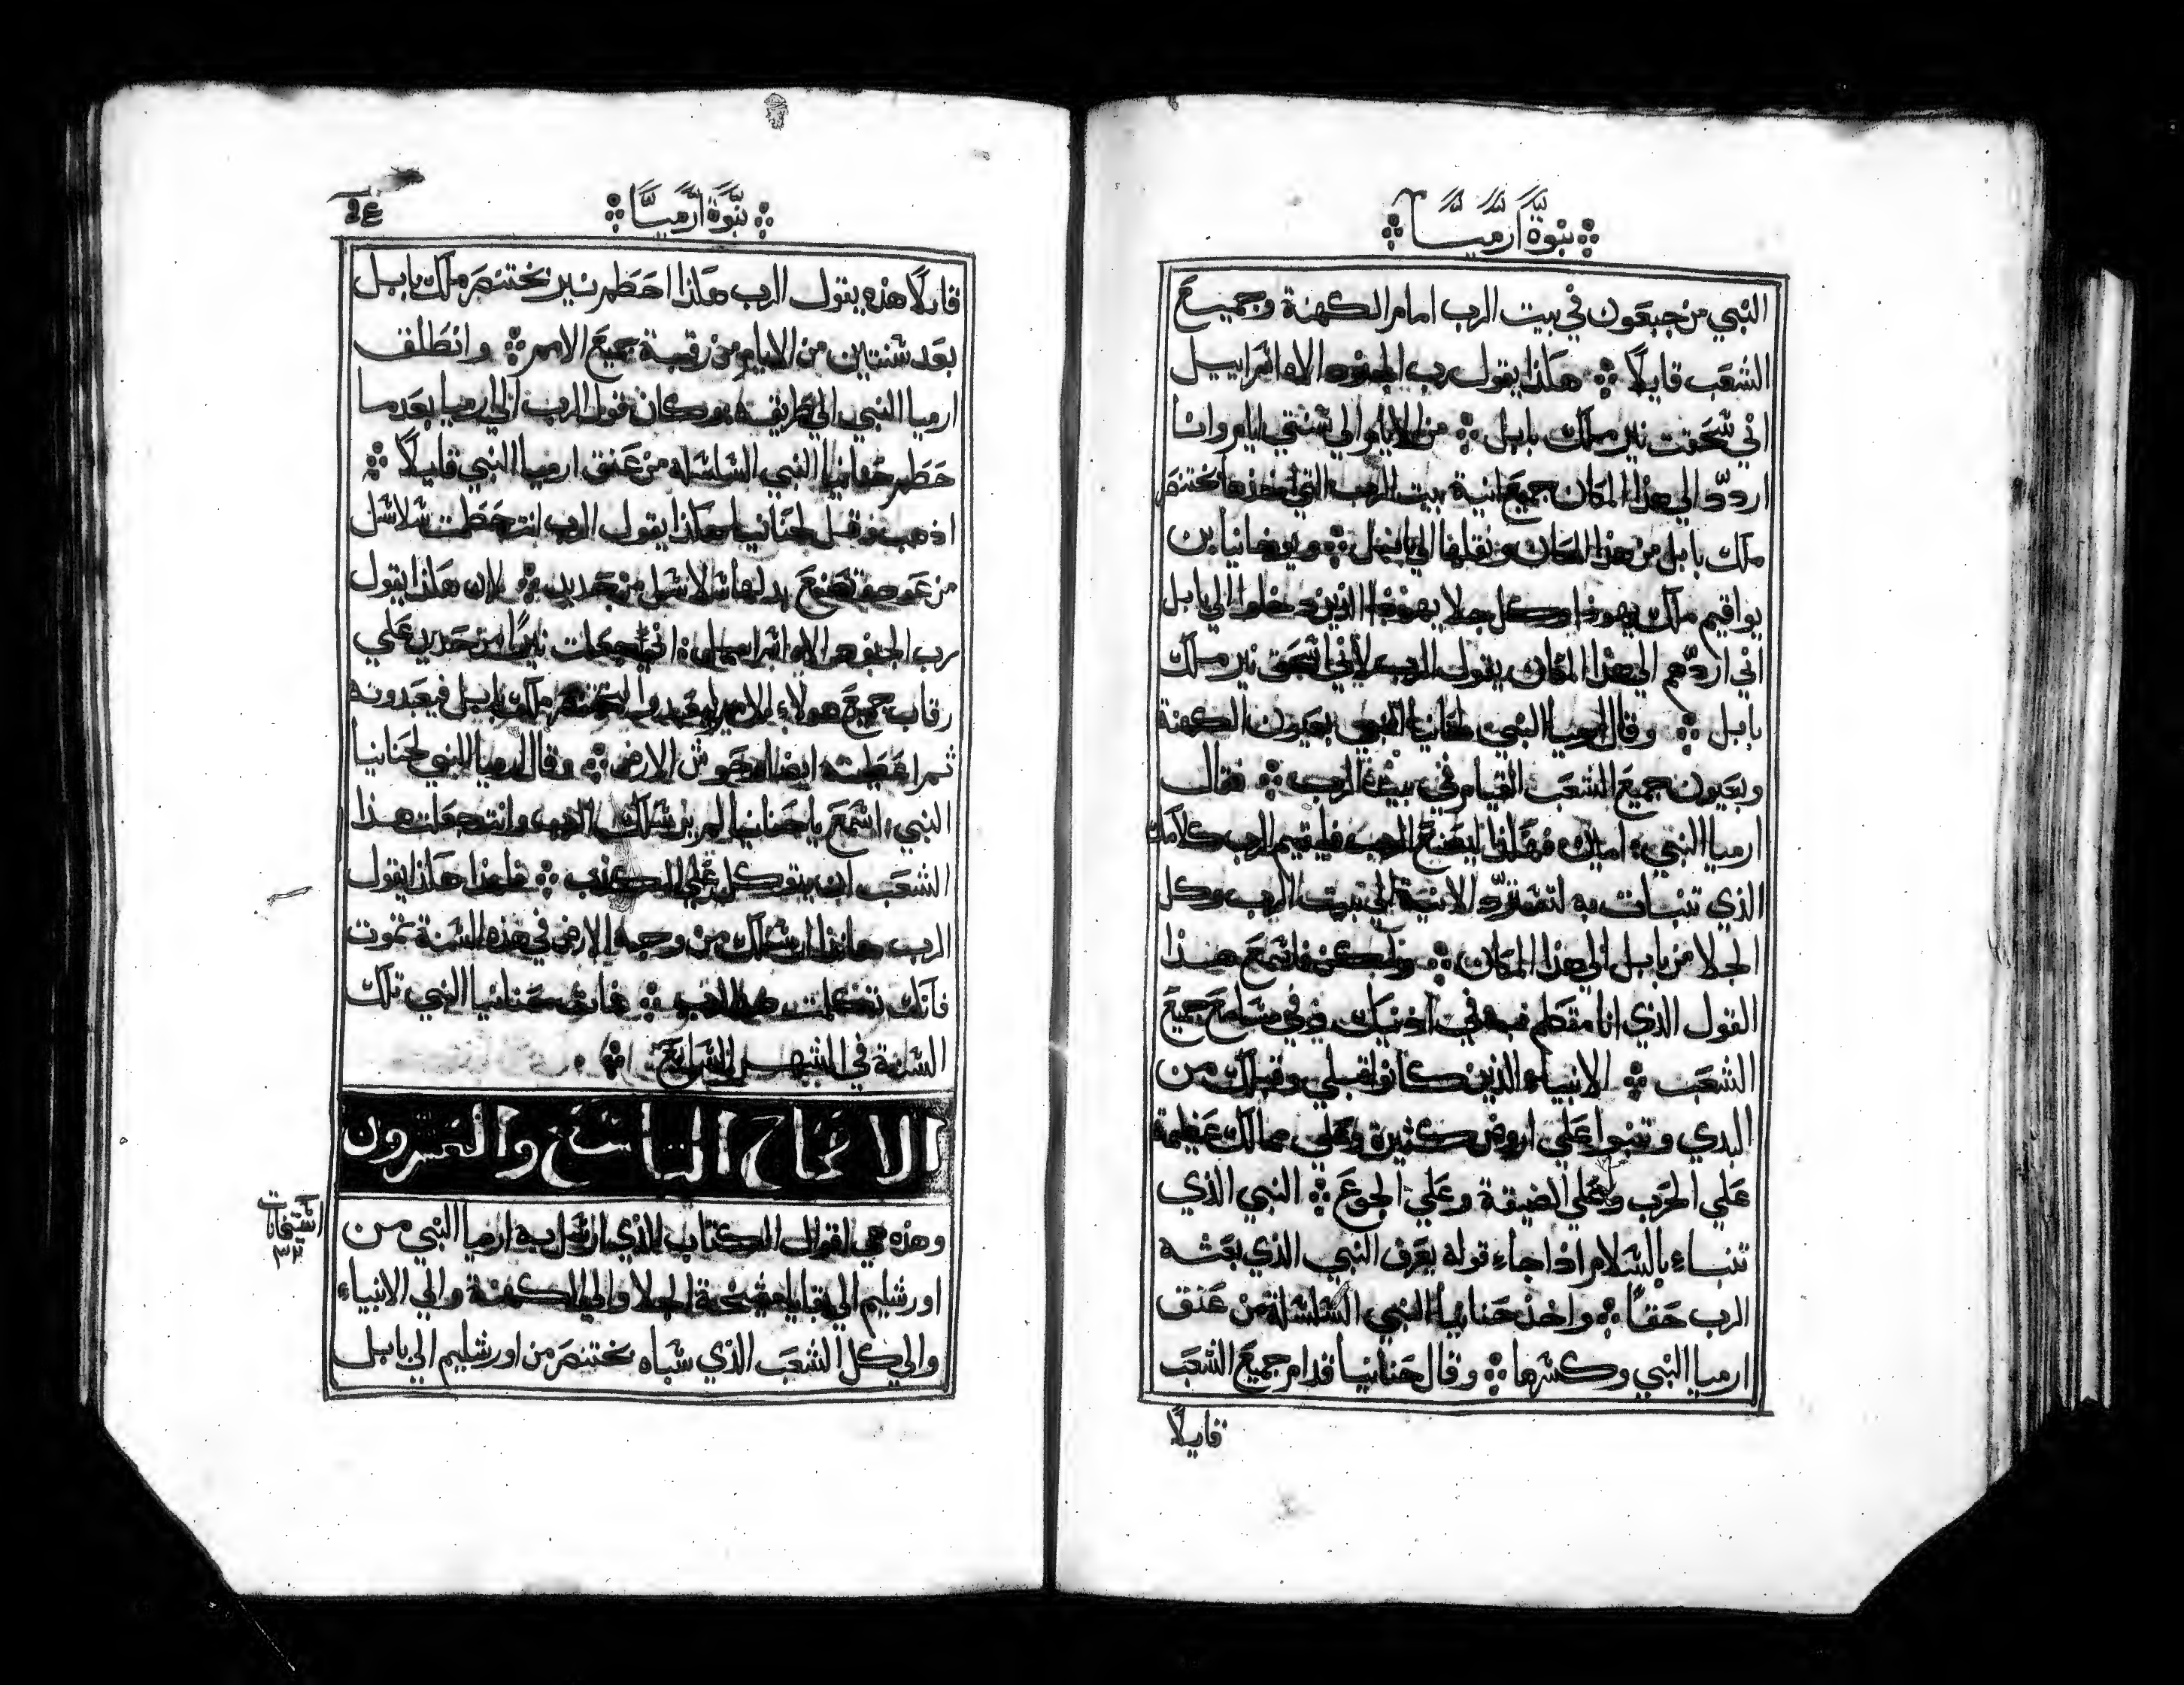 نبوة ارميا
النبي من جبعون في بيت الرب امام الكهنة وجميع
الشعب قايلاً هكذا يقول رب الجنود الاه اسراييل
اني سحقت نير ملك بابل من الايام الي سنتي ايام وانا
اردّد الي هذا المكان جميع انية بيت الرب التي اخذها بختنصر
ملك بابل من هذا المكان ونقلها الي بابل ويوخانيا بن
يواقيم ملك يهوذا وكل جلا يهوذا الذين دخلوا الي بابل
اني اردهم الي هذا المكان يقول الرب لاني اسحق نير ملك
بابل وقال ارميا النبي لحنانيا النبي بعيون الكهنة
وبعيون جميع الشعب القيام في بيت الرب فقال
ارميا النبي امين هكذا ليصنع الرب فليقيم الرب كلامك
الذي تنبات به لتسترد الانية الي بيت الرب وكل
الجلا من بابل الي هذا المكان ولكن فاسمع هذا
القول الذي انا متكلم به في اذنيك وفي مسامع جميع
الشعب الانبياء الذين كانوا قبلي وقبلك من
البدي وتنبوا علي اروض كثيرة وعلي ممالك عظيمة
علي الحرب وعلي الضيقة وعلي الجوع النبي الذي
تنباء بالسلام اذا جاء قوله يعرف النبي الذي بعثه
الرب حقاً واخذ حنانيا النبي السلسلة من عنق
ارميا النبي وكسرها وقال حنانيا قدام جميع الشعب
قايلاً
نبوة ارميا
قايلاً هذه يقول الرب هكذا احطم نير بختنصر ملك بابل
بعد سنتين من الايام من رقبة جميع الامم وانطلق
ارميا النبي الي طريقه وكان قول الرب الي ارميا بعد ما
حطم حنانيا النبي السلسلة من عنق ارميا النبي قايلاً
اذهب وقل لحنانيا هكذا يقول الرب انت حطمت سلاسل
من عود فتصنع بدلها سلاسل من حديد لان هكذا يقول
رب الجنود الاه اسراييل اني جعلت نيرًا من حديد علي
رقاب جميع هولاء الامم ليتعبدوا لبختنصر ملك بابل فيعبدونه
ثم اعطيته ايضا وحوش الارض وقال ارميا النبي لحنانيا
النبي اسمع يا حنانيا لم يرسلك الرب وانت جعلت هذا
الشعب ان يتوكل علي الكذب فلهذا هكذا يقول
الرب هانذا ارسلك من وجه الارض في هذه السنة تموت
فانك تكلمت ضد الرب فمات حنانيا النبي تلك
السنة في الشهر السابع
الاصحاح التاسع والعشرون
وهذه هي اقوال الكتاب الذي ارسل به ارميا النبي من
اورشليم الي بقايا مشيخة الجلا والي الكهنة والي الانبياء
والي كل الشعب الذي سباه بختنصر من اورشليم الي بابل